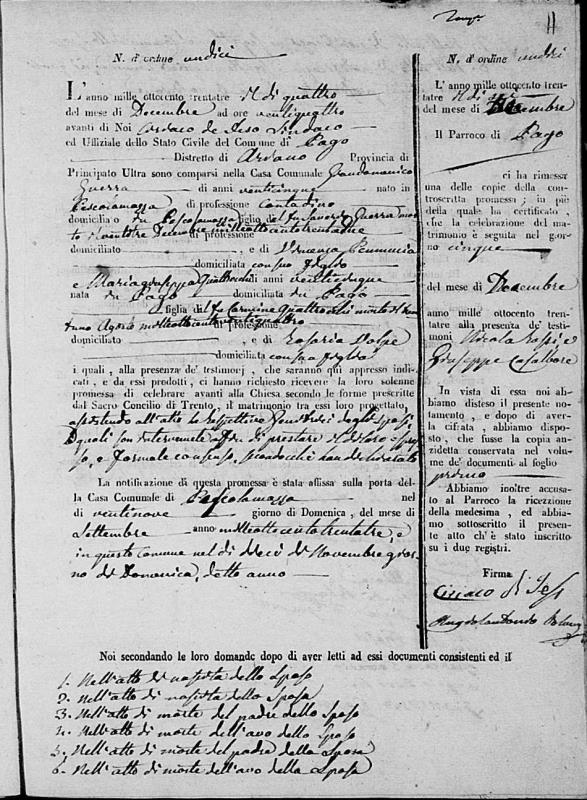 11
N. d'ordine undici
L'anno mille ottocento trentatre il dì quattro
del mese di Decembre ad ore ventiquattro
avanti di Noi Ciriaco de Jeso Sindaco
ed Uffiziale dello Stato Civile del Comune di Pago
Distretto di Ariano Provincia di
Principato Ultra sono comparsi nella Casa Comunale Giandomenico
Guerra di anni venticinque nato in
Pescolamazza di professione Contadino
domiciliato in Pescolamazza figlio del fu Saverio Guerra mor
to di professione
domiciliato e di
domiciliata con suo figlio
e Mariagiuseppa Quattrocchi di anni venticinque
nata in Pago domiciliata in Pago
figlia del fu Carmine Quattrocchi morto il
Agosto di professione
domiciliato , e di Rosaria Volpe
domiciliata con sua figlia
i quali , alla presenza de' testimoej , che saranno quì appresso indi-
cati , e da essi prodotti , ci hanno richiesto ricevere la loro solenne
promessa di celebrare avanti alla Chiesa secondo le forme prescritte
dal Sacro Concilio di Trento , il matrimonio tra essi loro progettato,
assistendo all'atto i rispettivi Genitori degli sposi
quali son intervenuti affin di prestare il di loro espres
so, e formale consenso,
La notificazione di questa promessa è stata affissa sulla porta del-
la Casa Comunale di Pescolamazza nel
dì ventinove giorno di Domenica , del mese di
Settembre anno milleottocentotrentatre, e
in questo Comune nel dì dieci di Novembre gior
no di Domenica, detto anno
N. d' ordine undici
L' anno mille ottocento tren-
tatre il dì
del mese di Decembre
Il Parroco di Pago
ci ha rimessa
una delle copie della con-
troscritta promessa ; in piè
della quale ha certificato ,
che la celebrazione del ma-
trimonio è seguita nel gior-
no cinque
del mese di Decembre
anno mille ottocento tren-
tatre alla presenza de' testi-
moni Nicola Rossi, e
Giuseppe Casalbore
In vista di essa noi ab-
biamo disteso il presente no-
tamento , e dopo di aver-
la cifrata , abbiamo dispo-
sto , che fusse la copia an-
zidetta conservata nel volu-
me de' documenti al foglio
primo
Abbiamo inoltre accusa-
to al Parroco la ricezione
della medesima , ed abbia-
mo sottoscritto il presen-
te atto ch' è stato inscritto
su i due registri.
Firma
Ciriaco di Jeso
Noi secondando le loro domande dopo di aver letti ad essi documenti consistenti ed il
1. Nell'atto di nascita dello Sposo
2. Nell'atto di nascita della Sposa
3. Nell'atto di morte del padre dello Sposo
4. Nell'atto di morte dell'avo dello Sposo
5. Nell'atto di morte del padre della Sposa
6. Nell'atto di morte dell'avo della Sposa